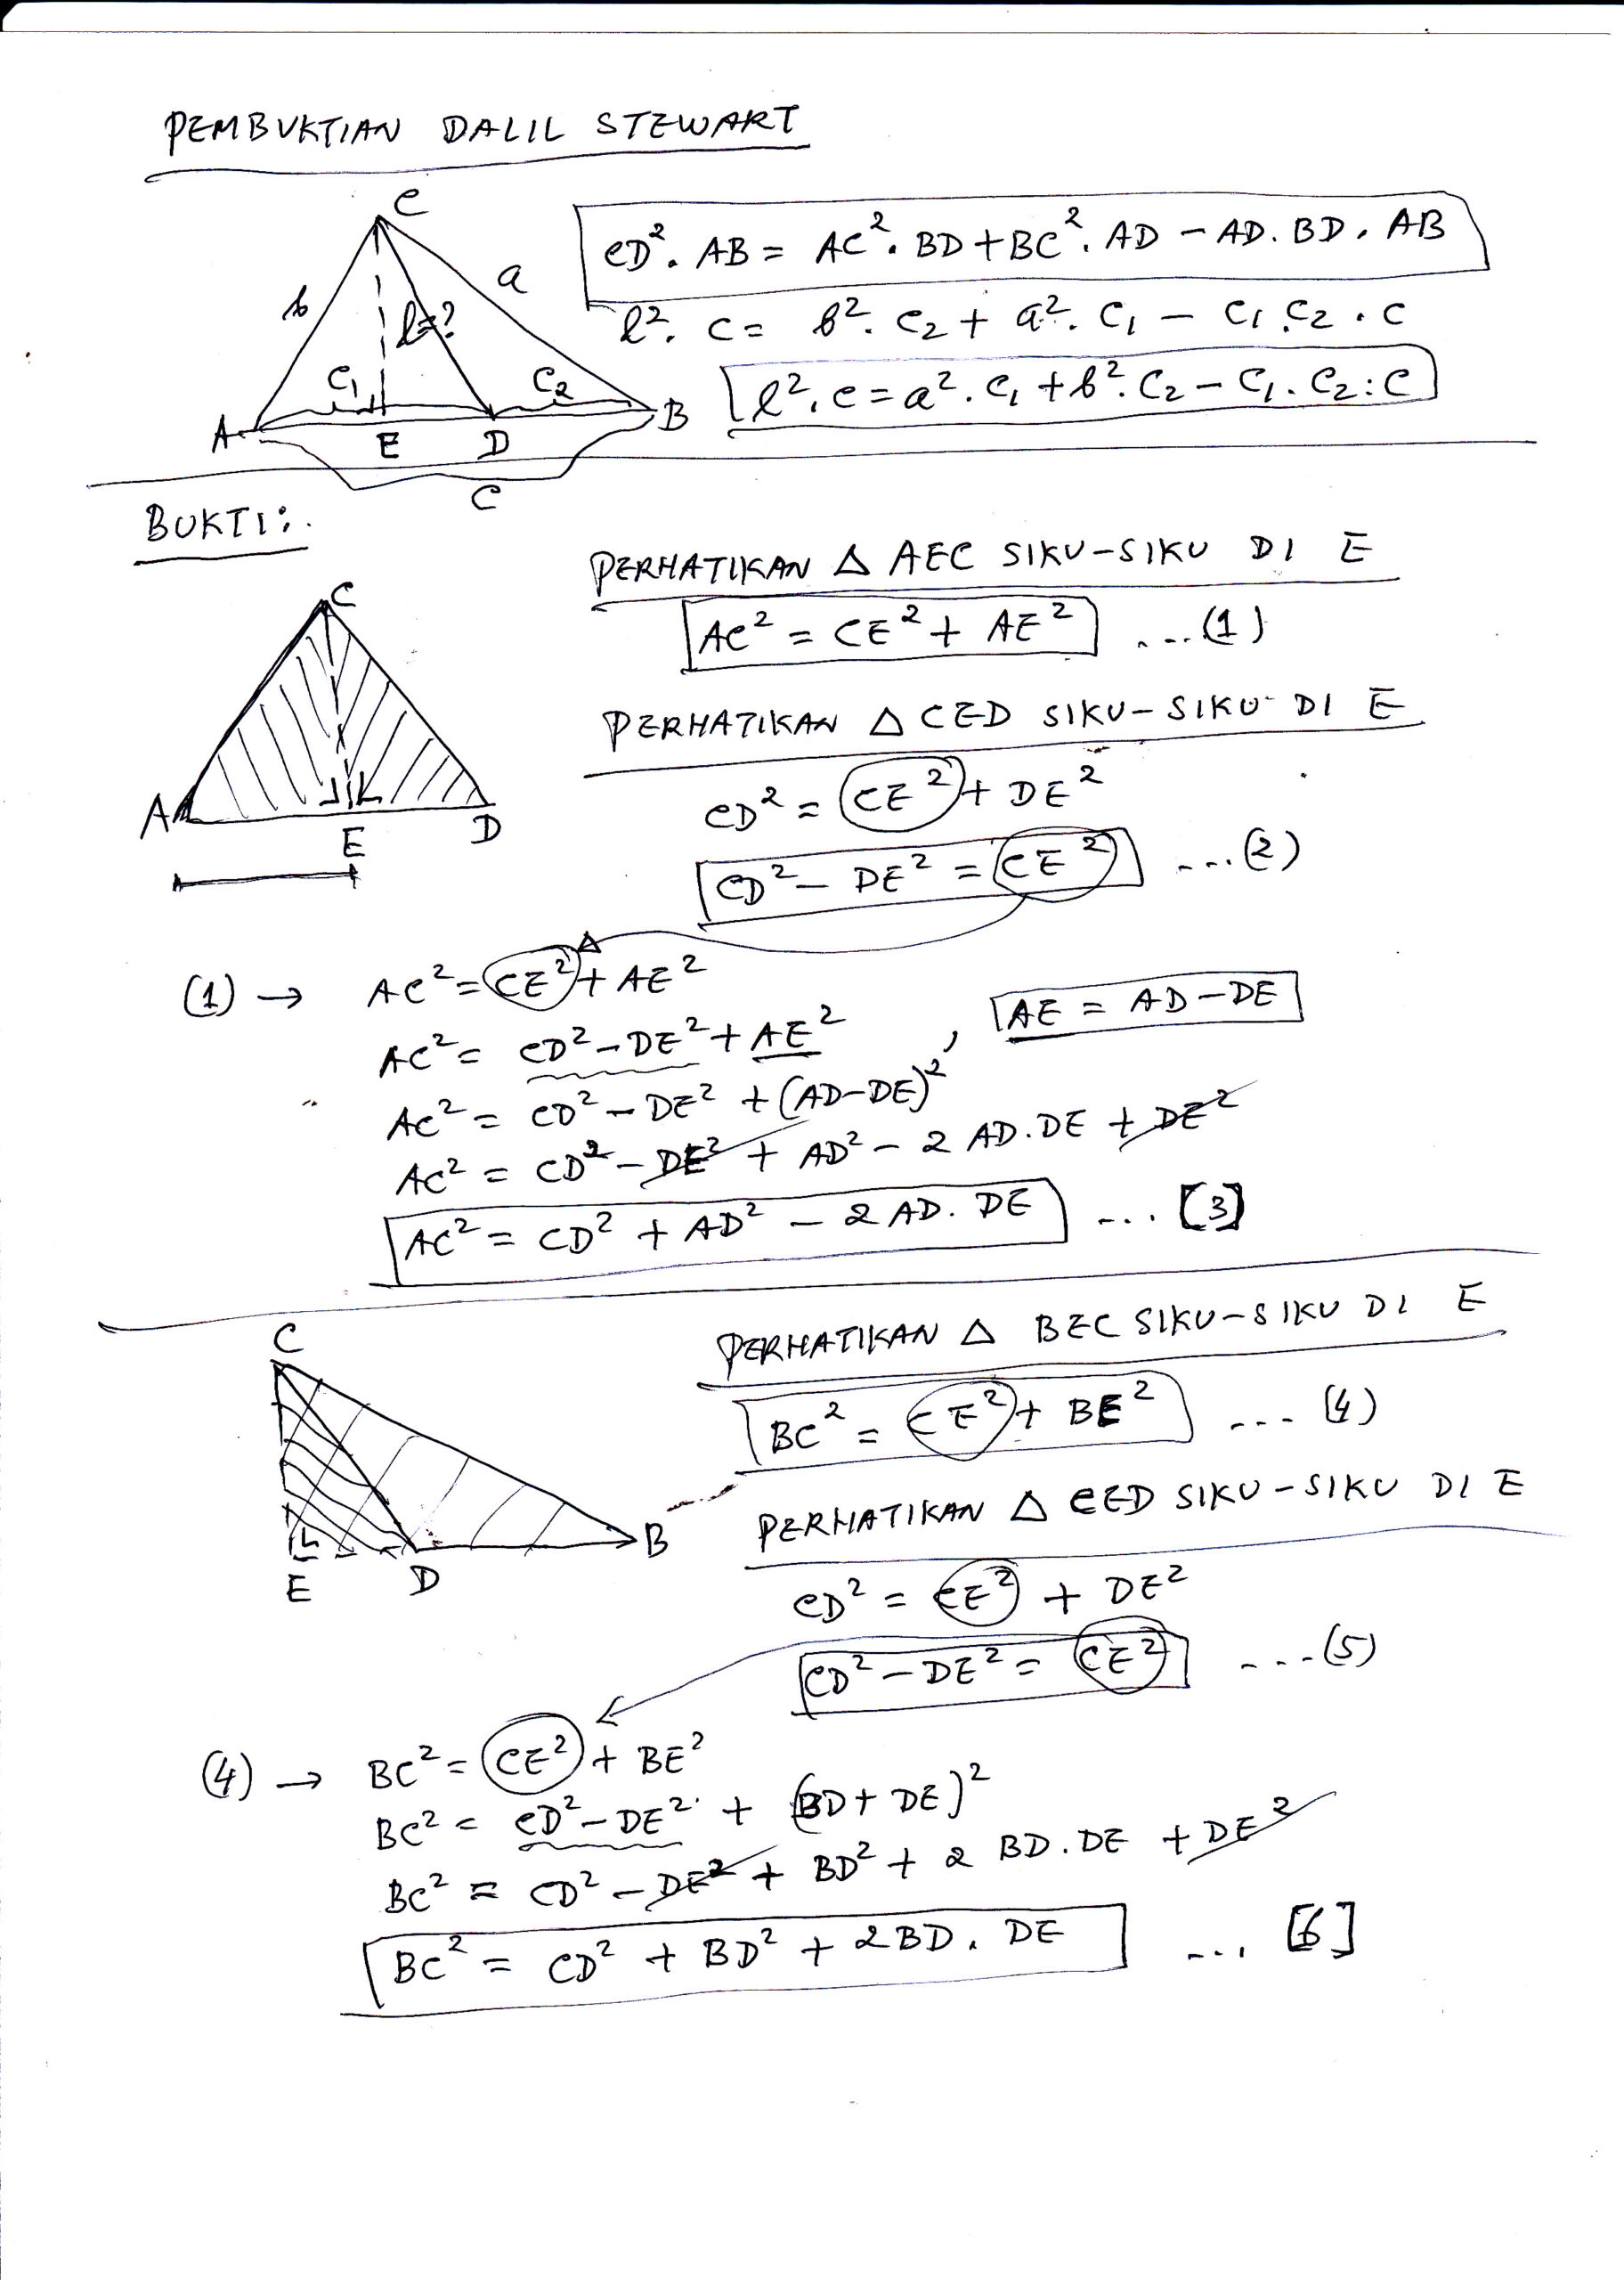 PEMBUKTIAN DALIL STEWART
C
b
a
l=?
C₁
C₂
A
E
D
B
C
CD². AB = AC². BD + BC². AD - AD. BD. AB
l². c = b². c₂ + a². c₁ - c₁. c₂ . c
l². c = a². c₁ + b². c₂ - c₁. c₂ : c
BUKTI:.
C
A
E
D
PERHATIKAN △ AEC SIKU-SIKU DI E
AC² = CE² + AE² ...(1)
PERHATIKAN △ CED SIKU-SIKU DI E
CD² = CE² + DE²
CD² - DE² = CE² ...(2)
(1) → AC² = CE² + AE²
AC² = CD² - DE² + AE² , AE = AD - DE
AC² = CD² - DE² + (AD-DE)²
AC² = CD² - DE² + AD² - 2 AD.DE + DE²
AC² = CD² + AD² - 2 AD. DE ... [3]
C
E
D
B
PERHATIKAN △ BEC SIKU-SIKU DI E
BC² = CE² + BE² ... (4)
PERHATIKAN △ CED SIKU-SIKU DI E
CD² = CE² + DE²
CD² - DE² = CE² ...(5)
(4) → BC² = CE² + BE²
BC² = CD² - DE² + (BD + DE)²
BC² = CD² - DE² + BD² + 2 BD. DE + DE²
BC² = CD² + BD² + 2BD. DE ... [6]